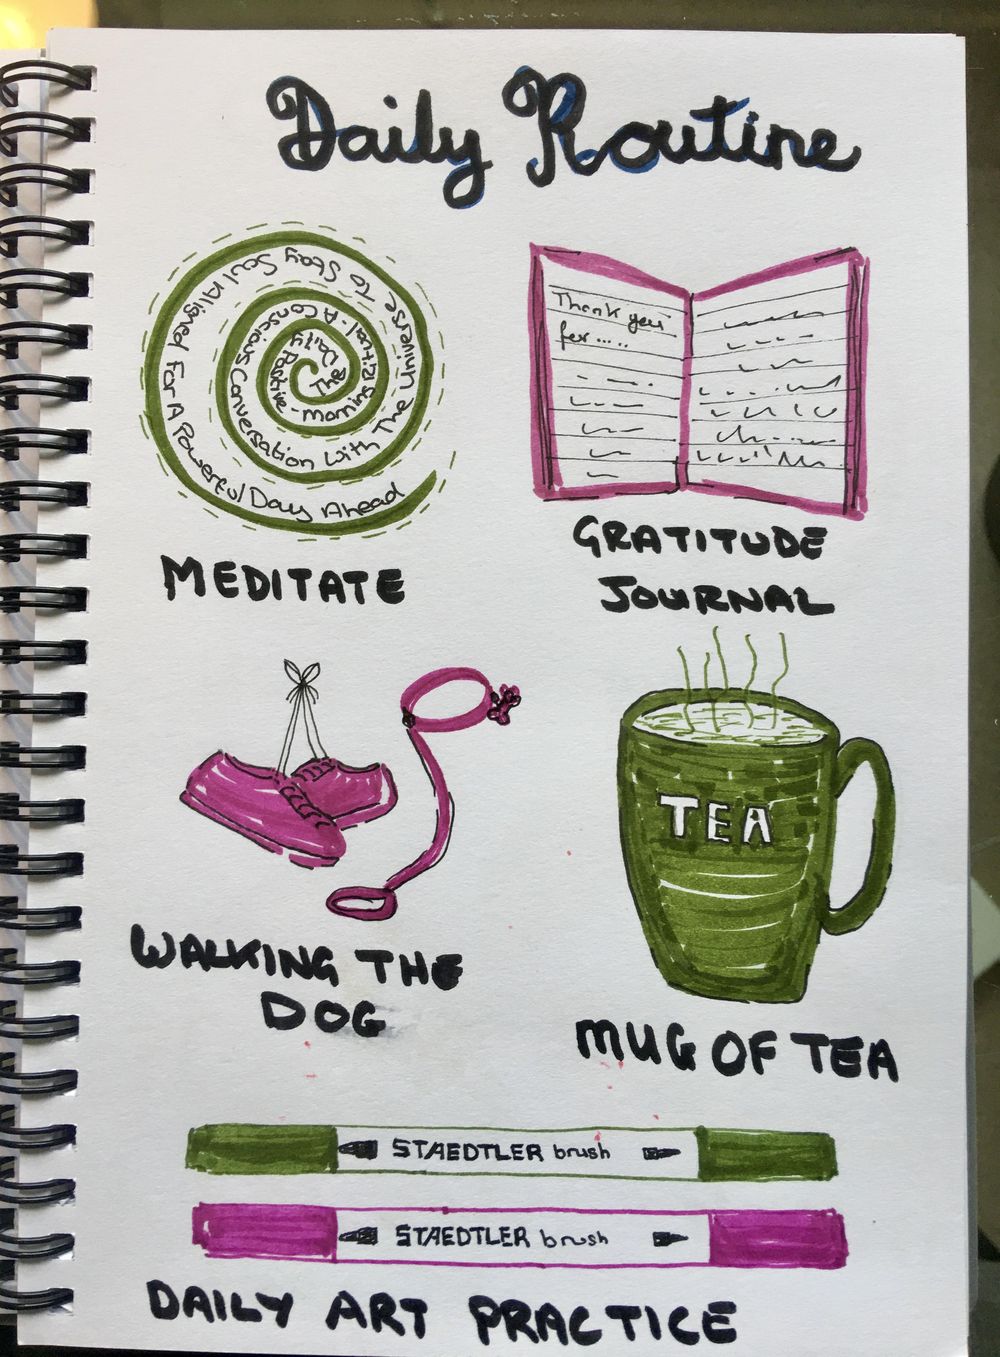 Daily Routine
The Daily Positive - Morning Ritual - A Conscious Conversation With The Universe To Stay Soul Aligned For A Powerful Day Ahead
MEDITATE
Thank you
for.....
GRATITUDE
JOURNAL
WALKING THE
DOG
TEA
MUG OF TEA
STAEDTLER brush
STAEDTLER brush
DAILY ART PRACTICE